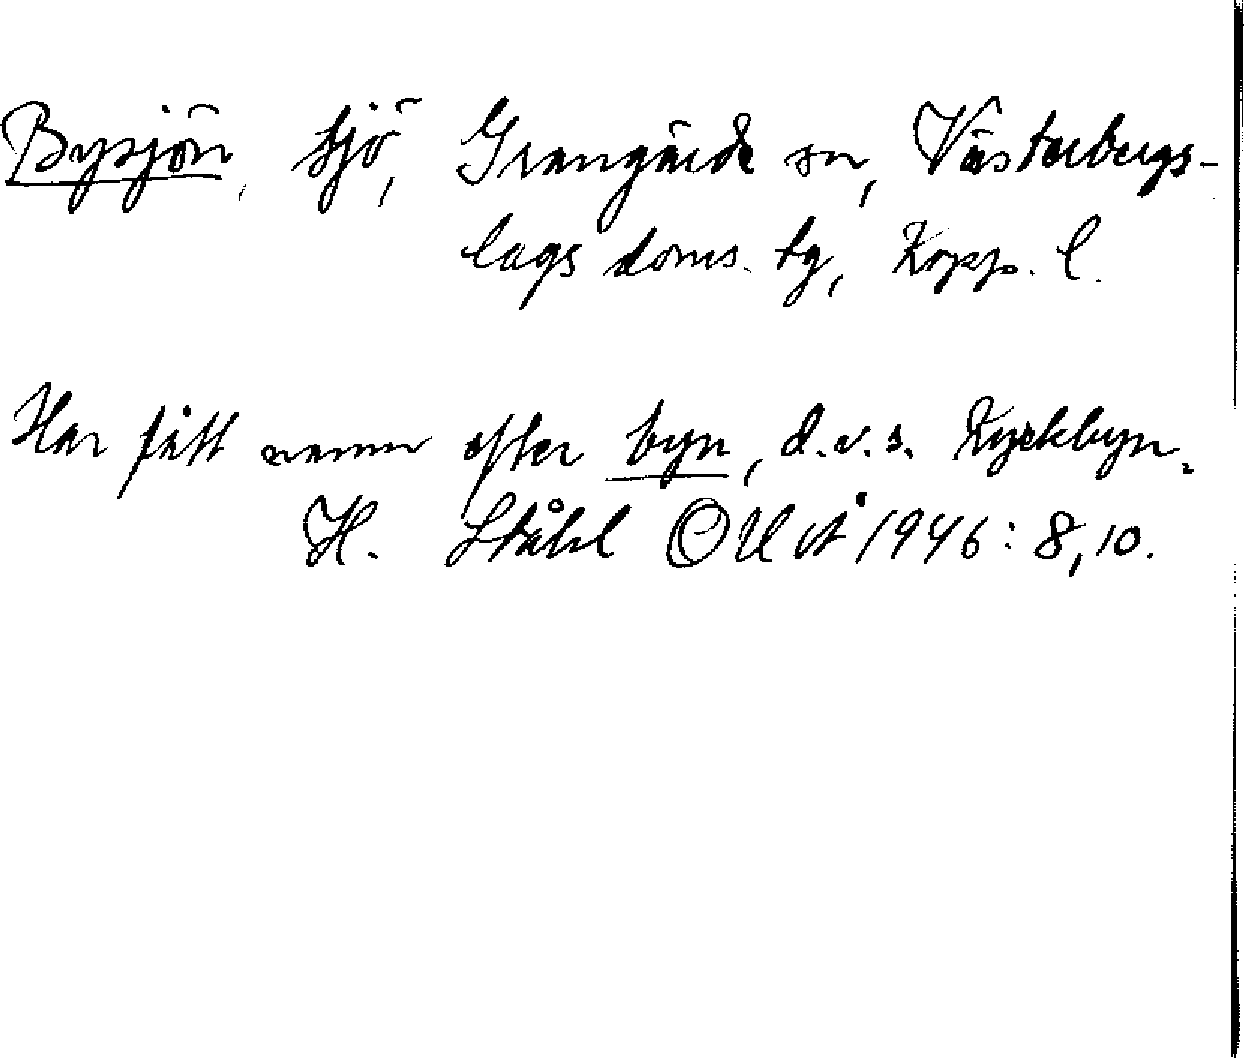 Bysjön, sjö, Grangärde sn, Västerbergs-
lags doms. tg, Kopp. l.
Har fått namn efter byn, d.v.s. Kyrkbyn.
H. Ståhl OUÅ 1946: 8, 10.